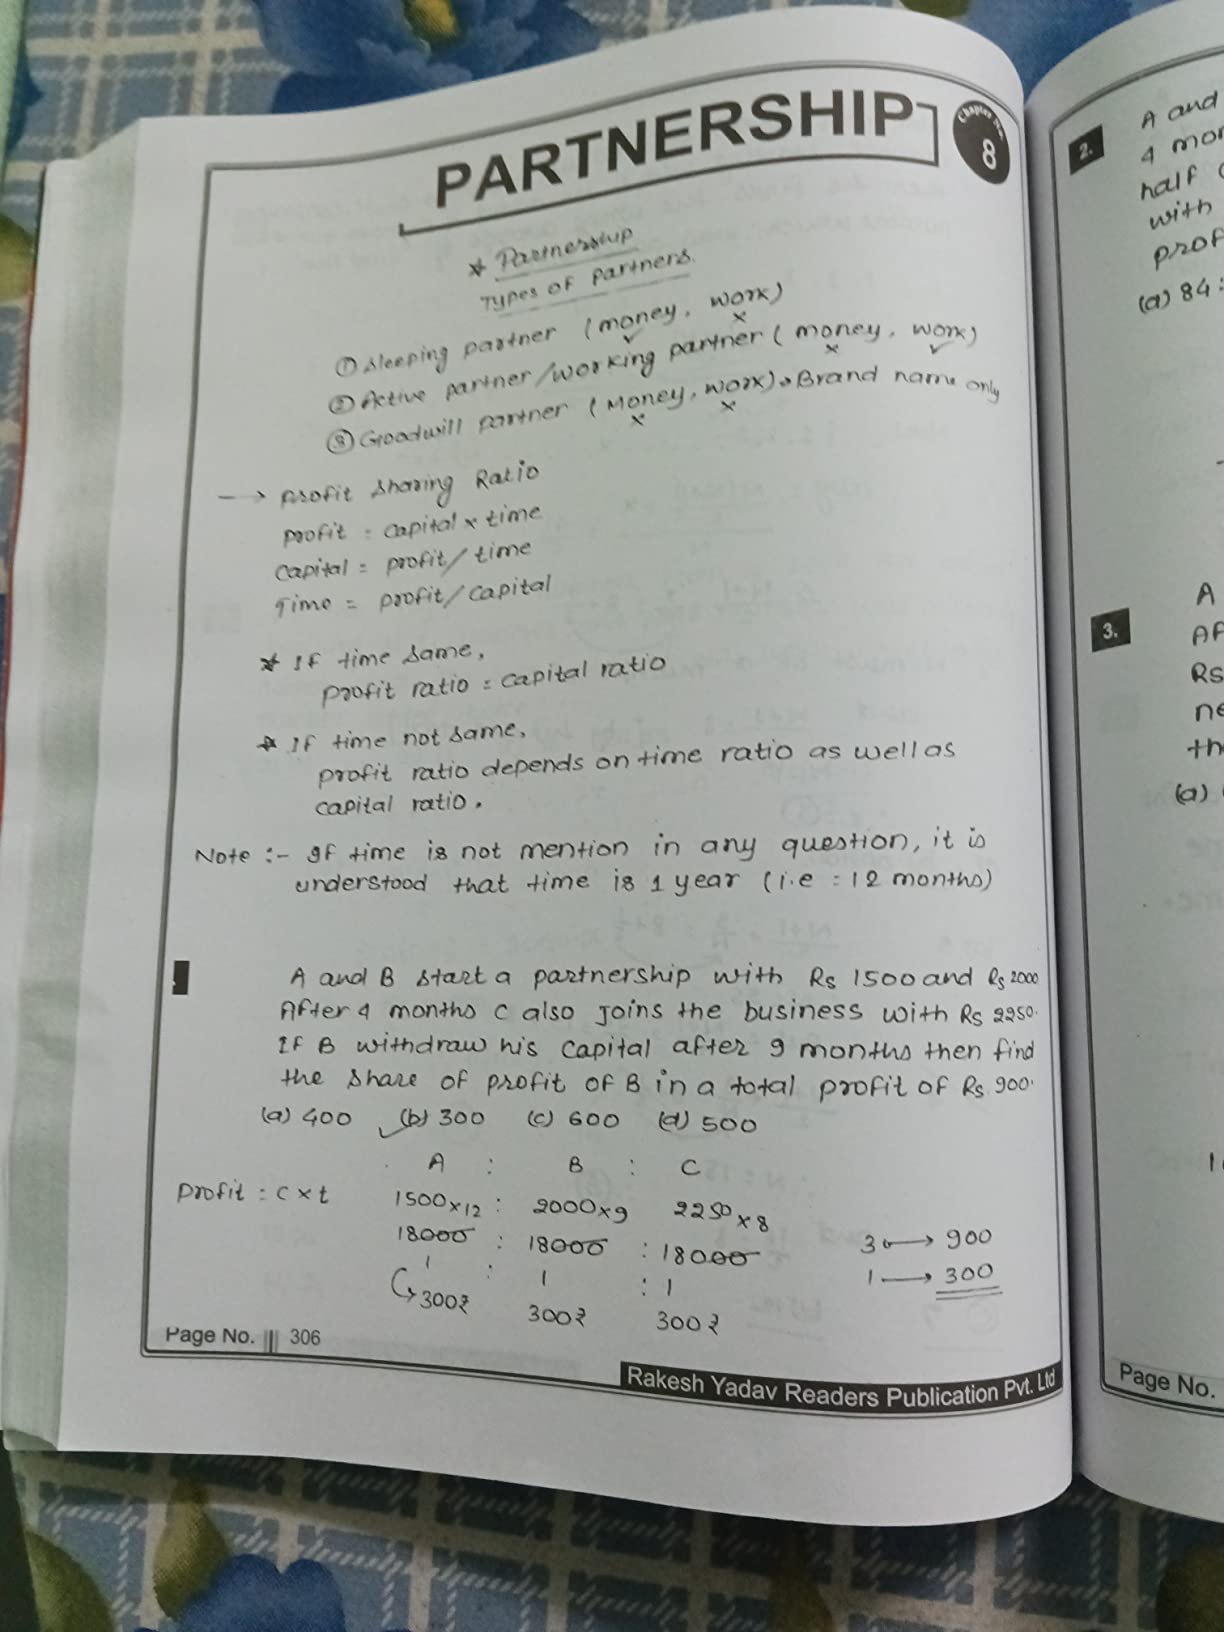 PARTNERSHIP
Chapter No.
8
* Partnership
Types of partners.
① Sleeping partner (money, work)
② Active partner/working partner (money, work)
③ Goodwill partner (Money, work) → Brand name only
→ profit sharing Ratio
profit = capital x time
capital = profit/time
Time = profit/capital
* If time same,
profit ratio = capital ratio
* If time not same,
profit ratio depends on time ratio as well as
capital ratio.
Note :- If time is not mention in any question, it is
understood that time is 1 year (i.e = 12 months)
A and B start a partnership with Rs 1500 and Rs 2000
After 4 months C also joins the business with Rs 2250.
If B withdraw his capital after 9 months then find
the share of profit of B in a total profit of Rs. 900.
(a) 400 (b) 300 (c) 600 (d) 500
A : B : C
Profit = C x t 1500 x 12 : 2000 x 9 2250 x 8
18000 : 18000 : 18000 3 → 900
1 : 1 : 1 1 → 300
300₹ 300₹ 300₹
Page No. 306
Rakesh Yadav Readers Publication Pvt. Ltd
2.
A and
4
half
with
(a) 84 :
3.
A
Rs
(a)
Page No.